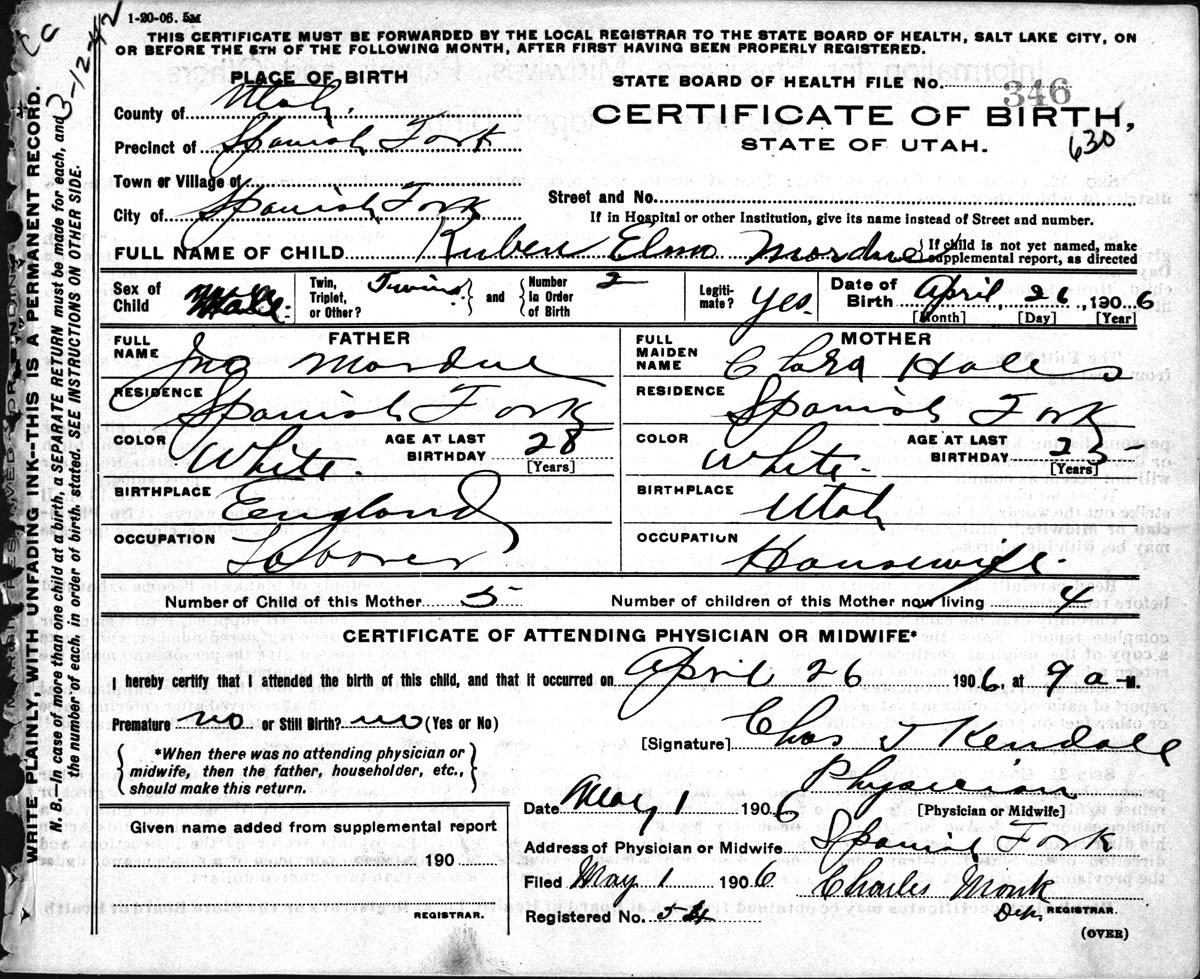 1-20-06. 5M
THIS CERTIFICATE MUST BE FORWARDED BY THE LOCAL REGISTRAR TO THE STATE BOARD OF HEALTH, SALT LAKE CITY, ON
OR BEFORE THE 5TH OF THE FOLLOWING MONTH, AFTER FIRST HAVING BEEN PROPERLY REGISTERED.
3-12-42
WRITE PLAINLY, WITH UNFADING INK--THIS IS A PERMANENT RECORD.
N. B.--In case of more than one child at a birth, a SEPARATE RETURN must be made for each, and
the number of each, in order of birth, stated. SEE INSTRUCTIONS ON OTHER SIDE.
PLACE OF BIRTH
County of Utah.
Precinct of Spanish Fork
Town or Village of
City of Spanish Fork
STATE BOARD OF HEALTH FILE NO. 346
CERTIFICATE OF BIRTH,
STATE OF UTAH.
630
Street and No.
If in Hospital or other Institution, give its name instead of Street and number.
FULL NAME OF CHILD Ruben Elmo Mordue { If child is not yet named, make
supplemental report, as directed
Sex of Child Male.
Twin, Triplet, or Other? Twins } and { Number in Order of Birth 2
Legitimate? yes.
Date of Birth April, 26, 1906
[Month] [Day] [Year]
FATHER
FULL NAME Jno Mordue
RESIDENCE Spanish Fork
COLOR White. AGE AT LAST BIRTHDAY 28
[Years]
BIRTHPLACE England
OCCUPATION Laborer
MOTHER
FULL MAIDEN NAME Clara Hales
RESIDENCE Spanish Fork
COLOR White. AGE AT LAST BIRTHDAY 25
[Years]
BIRTHPLACE Utah
OCCUPATION Housewife.
Number of Child of this Mother 5 Number of children of this Mother now living 4
CERTIFICATE OF ATTENDING PHYSICIAN OR MIDWIFE*
I hereby certify that I attended the birth of this child, and that it occurred on April 26 1906 at 9 a M.
Premature no or Still Birth? no (Yes or No)
*When there was no attending physician or
midwife, then the father, householder, etc.,
should make this return.
[Signature] Chas J Kendall
Physician
[Physician or Midwife]
Date May 1 1906
Address of Physician or Midwife Spanish Fork
Filed May 1 1906 Charles Monk
Dep. REGISTRAR.
Registered No. 54
(OVER)
Given name added from supplemental report
190
REGISTRAR.